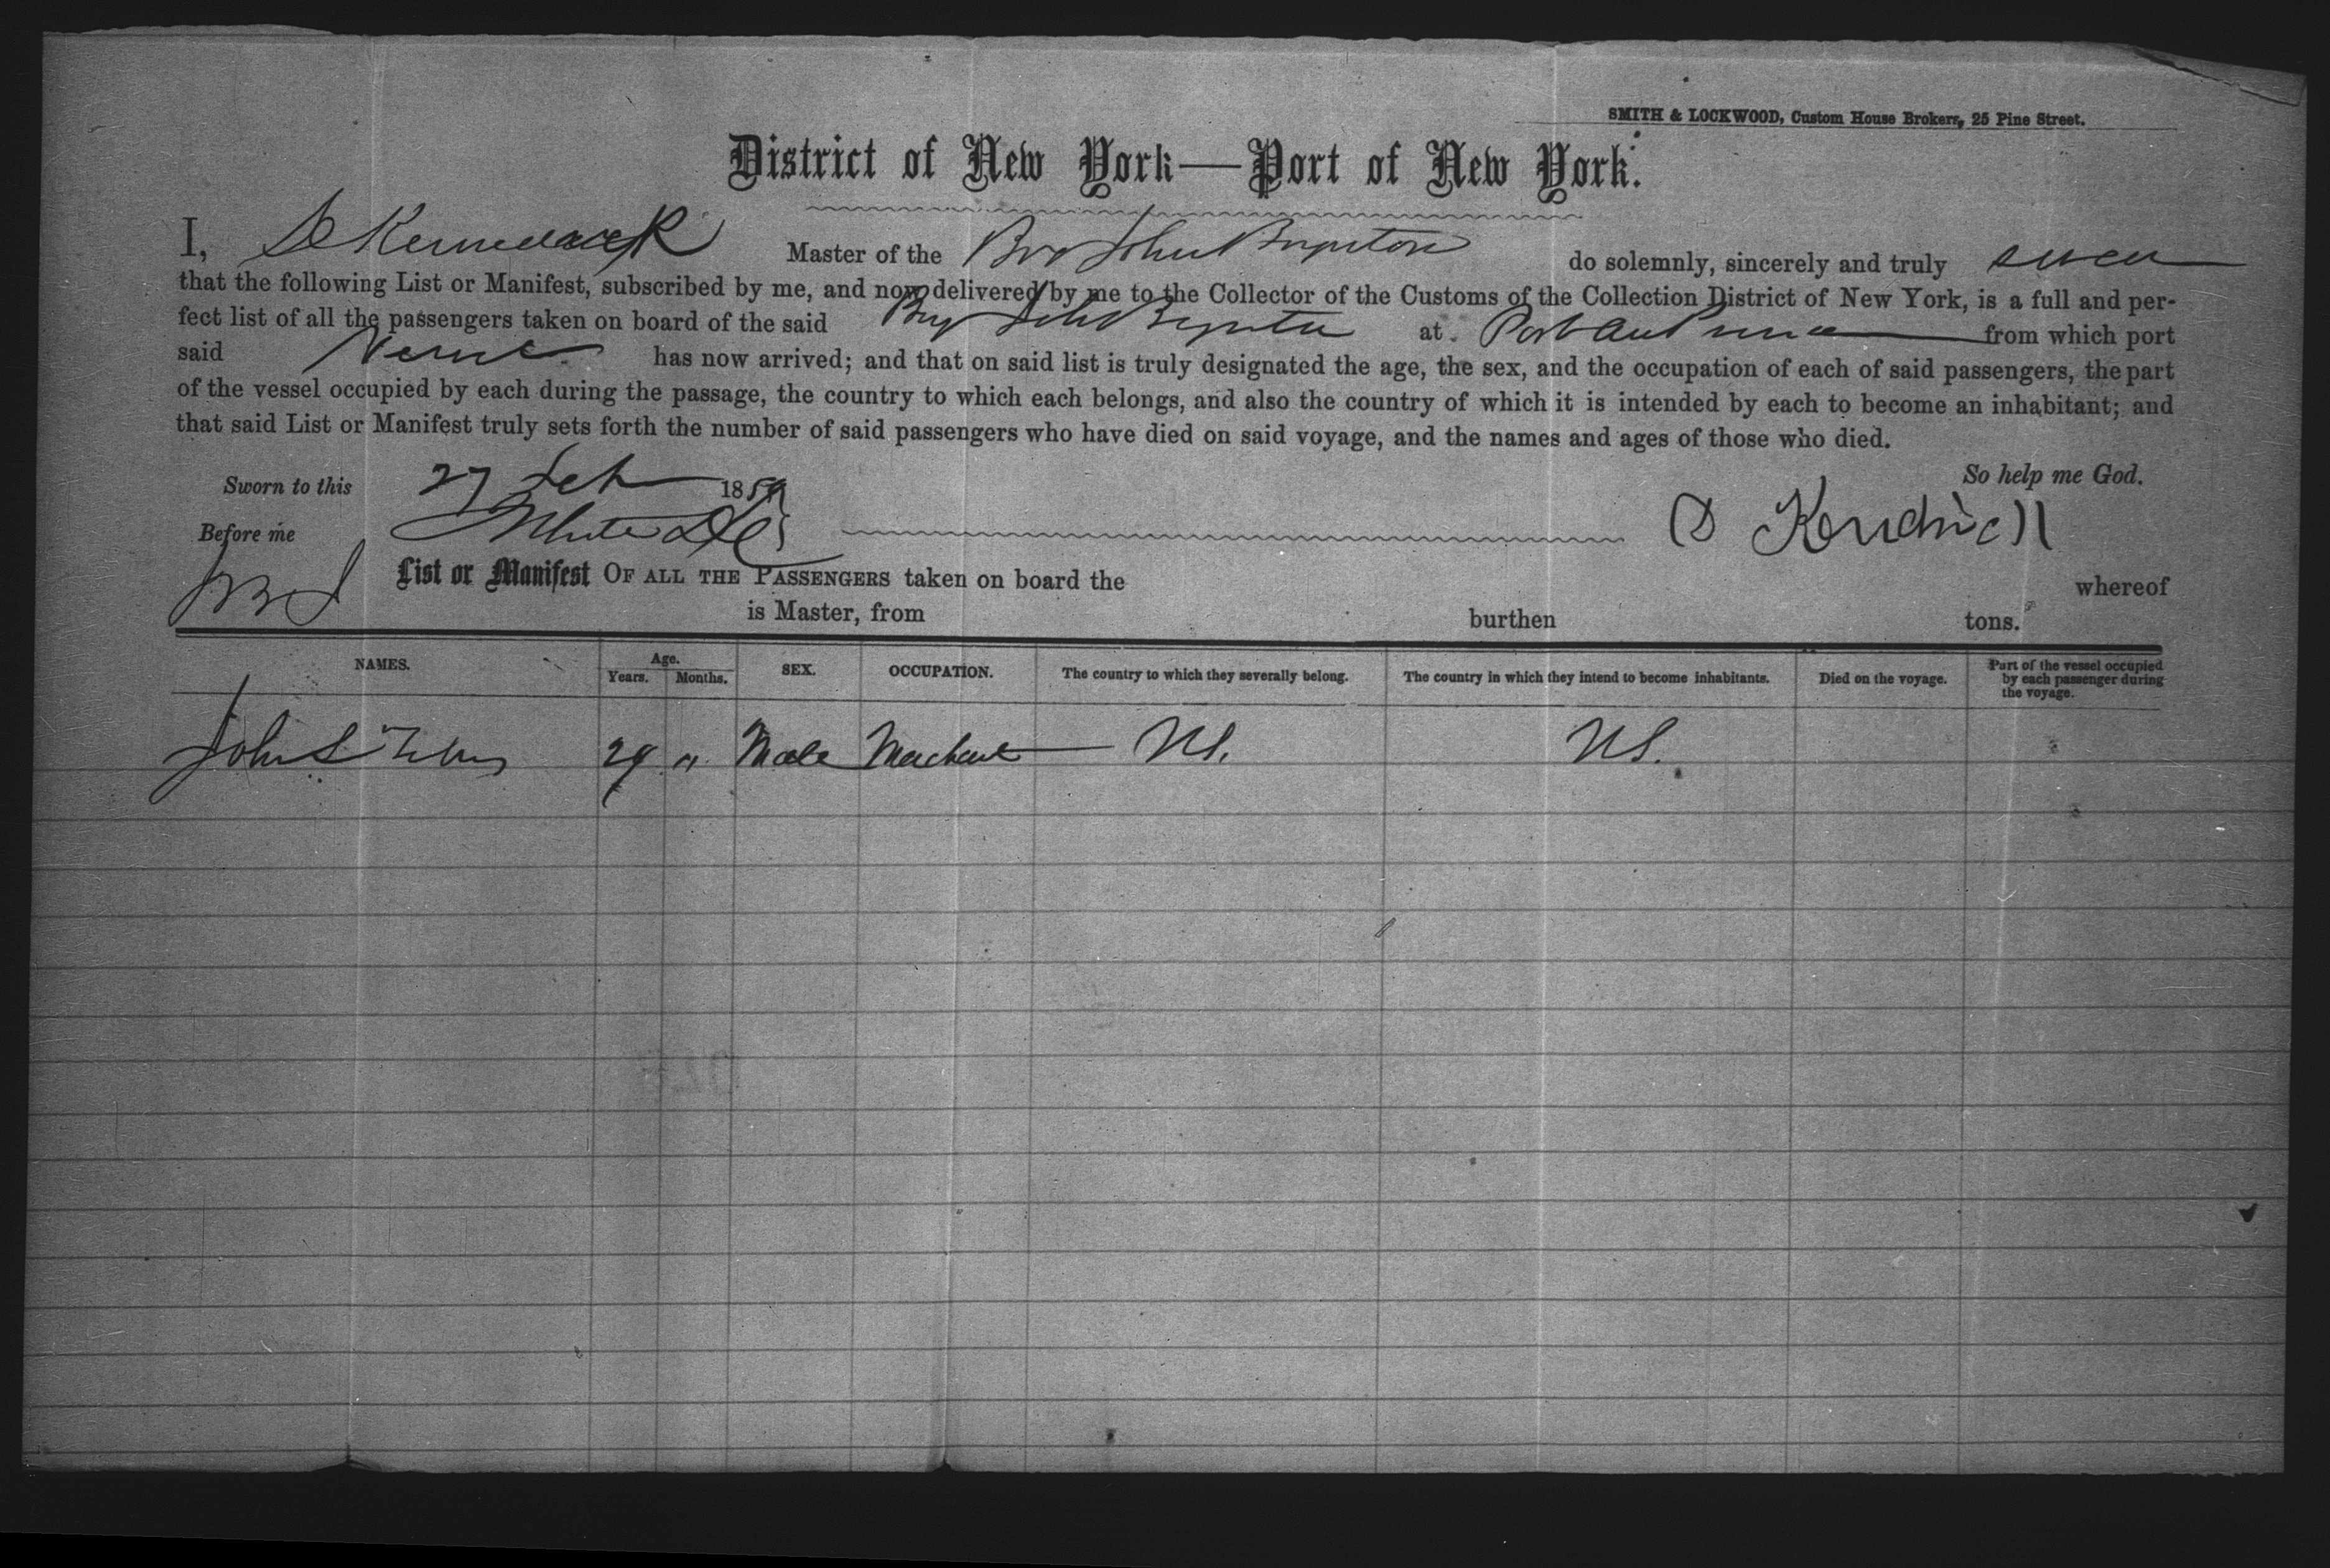 SMITH & LOCKWOOD, Custom House Brokers, 25 Pine Street.
District of New York—Port of New York.
I, Master of the John Boynton do solemnly, sincerely and truly swear
that the following List or Manifest, subscribed by me, and now delivered by me to the Collector of the Customs of the Collection District of New York, is a full and per-
fect list of all the passengers taken on board of the said Brig John Boynton at Port au Prince from which port
said Vessel has now arrived; and that on said list is truly designated the age, the sex, and the occupation of each of said passengers, the part
of the vessel occupied by each during the passage, the country to which each belongs, and also the country of which it is intended by each to become an inhabitant; and
that said List or Manifest truly sets forth the number of said passengers who have died on said voyage, and the names and ages of those who died.
So help me God.
Sworn to this 27 Feb 185
Before me
List or Manifest OF ALL THE PASSENGERS taken on board the whereof
is Master, from burthen tons.
NAMES. Age. Years. Months. SEX. OCCUPATION. The country to which they severally belong. The country in which they intend to become inhabitants. Died on the voyage. Part of the vessel occupied by each passenger during the voyage.
John S 29 " Male Merchant US. US.